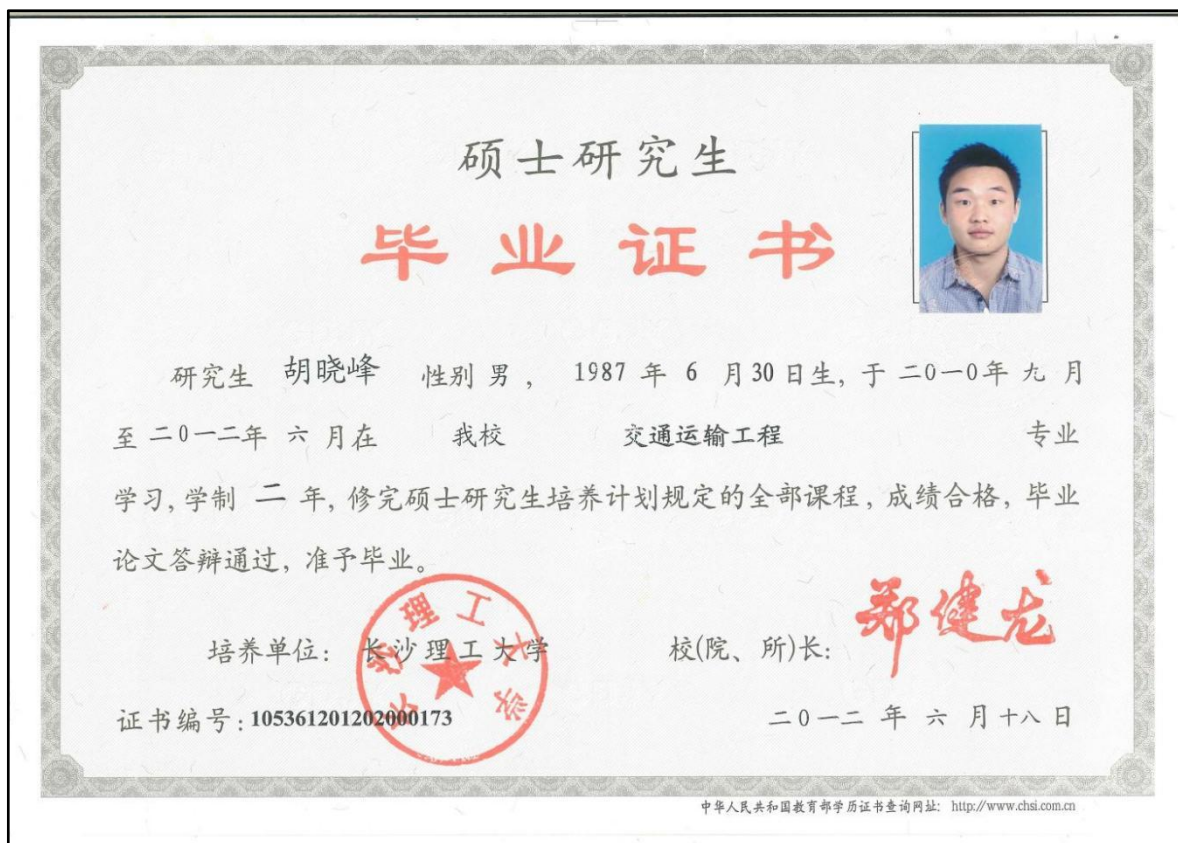 硕士研究生
毕业证书
研究生 胡晓峰 性别 男， 1987 年 6 月 30 日生，于 二〇一〇年 九 月
至 二〇一二年 六 月在 我校 交通运输工程 专业
学习，学制 二 年，修完硕士研究生培养计划规定的全部课程，成绩合格，毕业
论文答辩通过，准予毕业。
培养单位：长沙理工大学 校(院、所)长：郑健龙
长沙理工大学
证书编号：105361201202000173 二〇一二 年 六 月十八 日
中华人民共和国教育部学历证书查询网址：http://www.chsi.com.cn